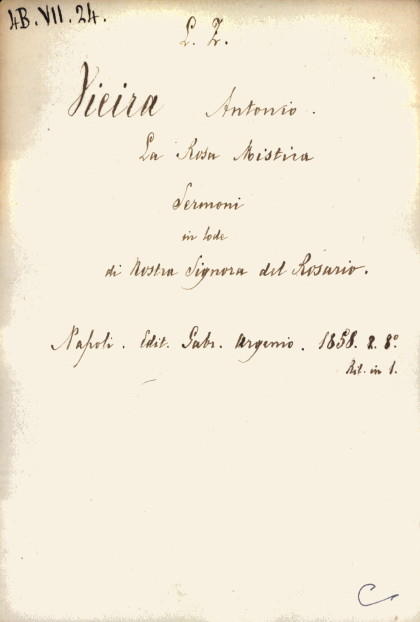 4B.VII.24.
L. Z.
Vieira Antonio.
La Rosa Mistica
Sermoni
in lode
di Nostra Signora del Rosario.
Napoli. Edit. Gabr. Argenio. 1858. 2. 8°
Ril. in 1.